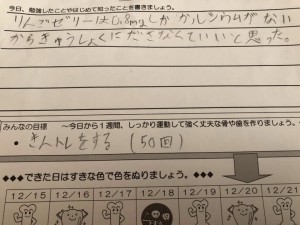 今日、勉強したことやはじめて知ったことを書きましょう。
りんごゼリーは0.8mgしかカルシウムがない
からきゅうしょくにださなくていいと思った。
みんなの目標 ～今日から1週間、しっかり運動して強く丈夫な骨や歯を作りましょう。
・きんトレをする（50回）
◆◆◆できた日はすきな色で色をぬりましょう。◆◆◆
12/15 12/16 12/17 12/18 12/19 12/20 12/21